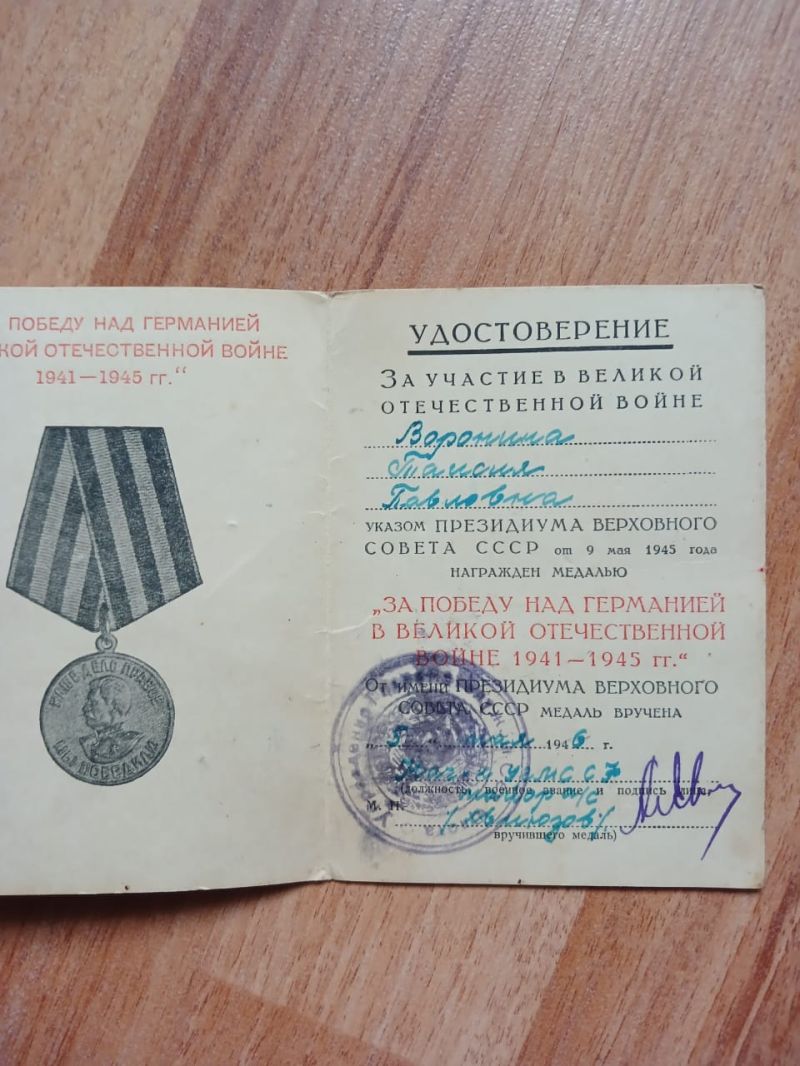 ПОБЕДУ НАД ГЕРМАНИЕЙ
КОЙ ОТЕЧЕСТВЕННОЙ ВОЙНЕ
1941—1945 гг."
НАШЕ ДЕЛО ПРАВОЕ
МЫ ПОБЕДИЛИ
УДОСТОВЕРЕНИЕ
ЗА УЧАСТИЕ В ВЕЛИКОЙ
ОТЕЧЕСТВЕННОЙ ВОЙНЕ
Воронина
Таисия
Павловна
УКАЗОМ ПРЕЗИДИУМА ВЕРХОВНОГО
СОВЕТА СССР от 9 мая 1945 года
НАГРАЖДЕН МЕДАЛЬЮ
„ЗА ПОБЕДУ НАД ГЕРМАНИЕЙ
В ВЕЛИКОЙ ОТЕЧЕСТВЕННОЙ
ВОЙНЕ 1941—1945 гг."
От имени ПРЕЗИДИУМА ВЕРХОВНОГО
СОВЕТА СССР МЕДАЛЬ ВРУЧЕНА
мая 1946 г.
(должность, военное звание и подпись лица,
М. П. майор
вручившего медаль)